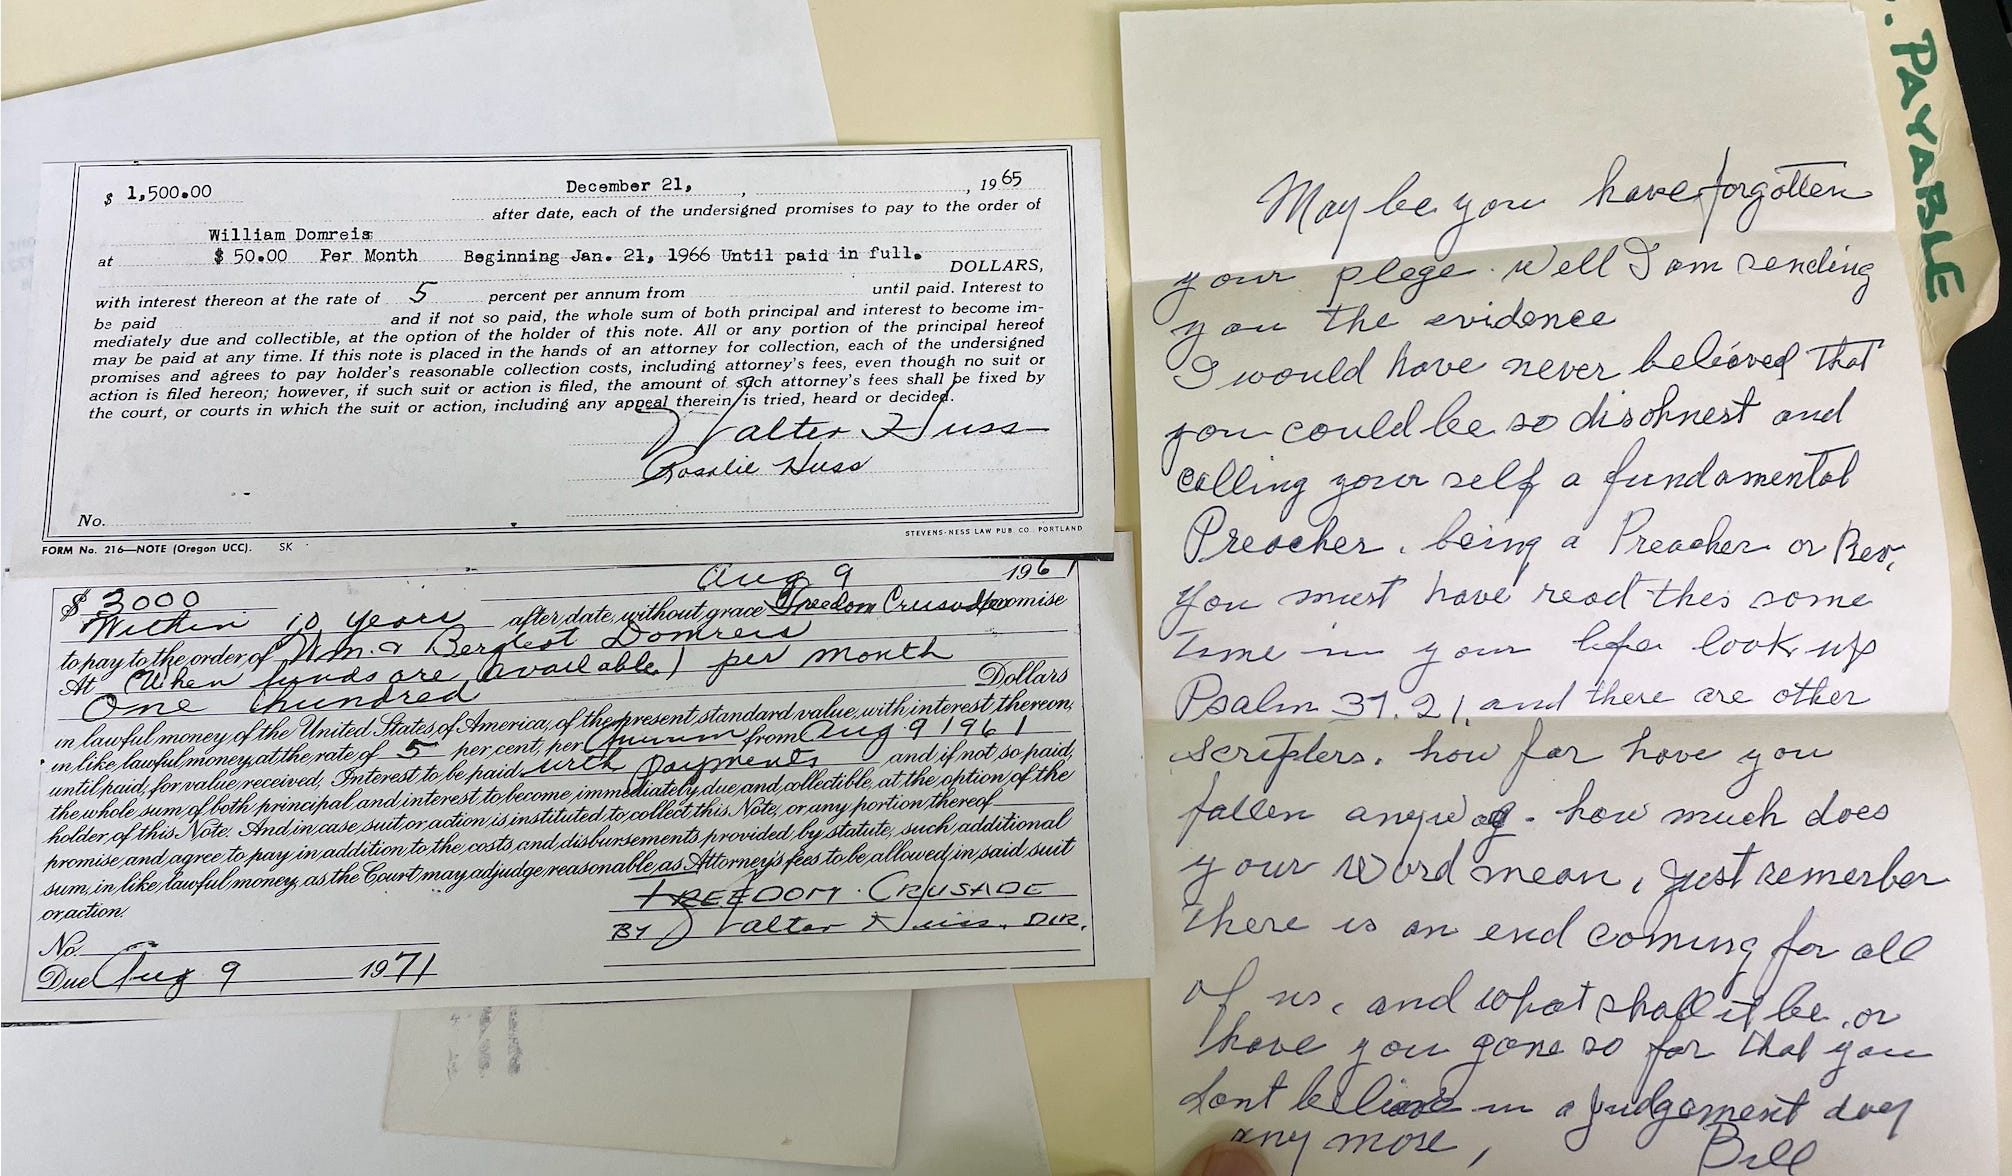 $ 1,500.00 December 21, , 1965
after date, each of the undersigned promises to pay to the order of
William Domreis
at $ 50.00 Per Month Beginning Jan. 21, 1966 Until paid in full.
DOLLARS,
with interest thereon at the rate of 5 percent per annum from until paid. Interest to
be paid and if not so paid, the whole sum of both principal and interest to become im-
mediately due and collectible, at the option of the holder of this note. All or any portion of the principal hereof
may be paid at any time. If this note is placed in the hands of an attorney for collection, each of the undersigned
promises and agrees to pay holder's reasonable collection costs, including attorney's fees, even though no suit or
action is filed hereon; however, if such suit or action is filed, the amount of such attorney's fees shall be fixed by
the court, or courts in which the suit or action, including any appeal therein is tried, heard or decided.
Walter Huss
Rosalie Huss
No.
STEVENS-NESS LAW PUB. CO. PORTLAND
FORM No. 216—NOTE (Oregon UCC). SK
$ 3000 Aug 9 1961
Within 10 years after date, without grace Freedom Crusade promise
to pay to the order of Wm. & Domreis
At (When funds are available) per month
One hundred Dollars
in lawful money of the United States of America, of the present standard value, with interest thereon,
in like lawful money, at the rate of 5 per cent, per Annum from Aug 9 1961
until paid, for value received, Interest to be paid with payments and if not so paid,
the whole sum of both principal and interest to become immediately due and collectible, at the option of the
holder of this Note. And in case suit or action is instituted to collect this Note, or any portion thereof
promise and agree to pay in addition to the costs and disbursements provided by statute, such additional
sum, in like lawful money, as the Court may adjudge reasonable, as Attorney's fees to be allowed in said suit
or action.
FREEDOM CRUSADE
BY Walter Huss, DIR.
No.
Due Aug 9 1971
May be you have forgotten
your plege. Well I am sending
you the evidence
I would have never believed that
you could be so dishonest and
calling your self a fundamental
Preacher. being a Preacher or Rev,
you must have read thes some
time in your life look up
Psalm 37.21, and there are other
scripters. how far have you
fallen anyway. how much does
your word mean, just remember
there is an end coming for all
of us, and what shall it be, or
have you gone so far that you
dont believe in a judgement day
any more, Bill
. PAYABLE